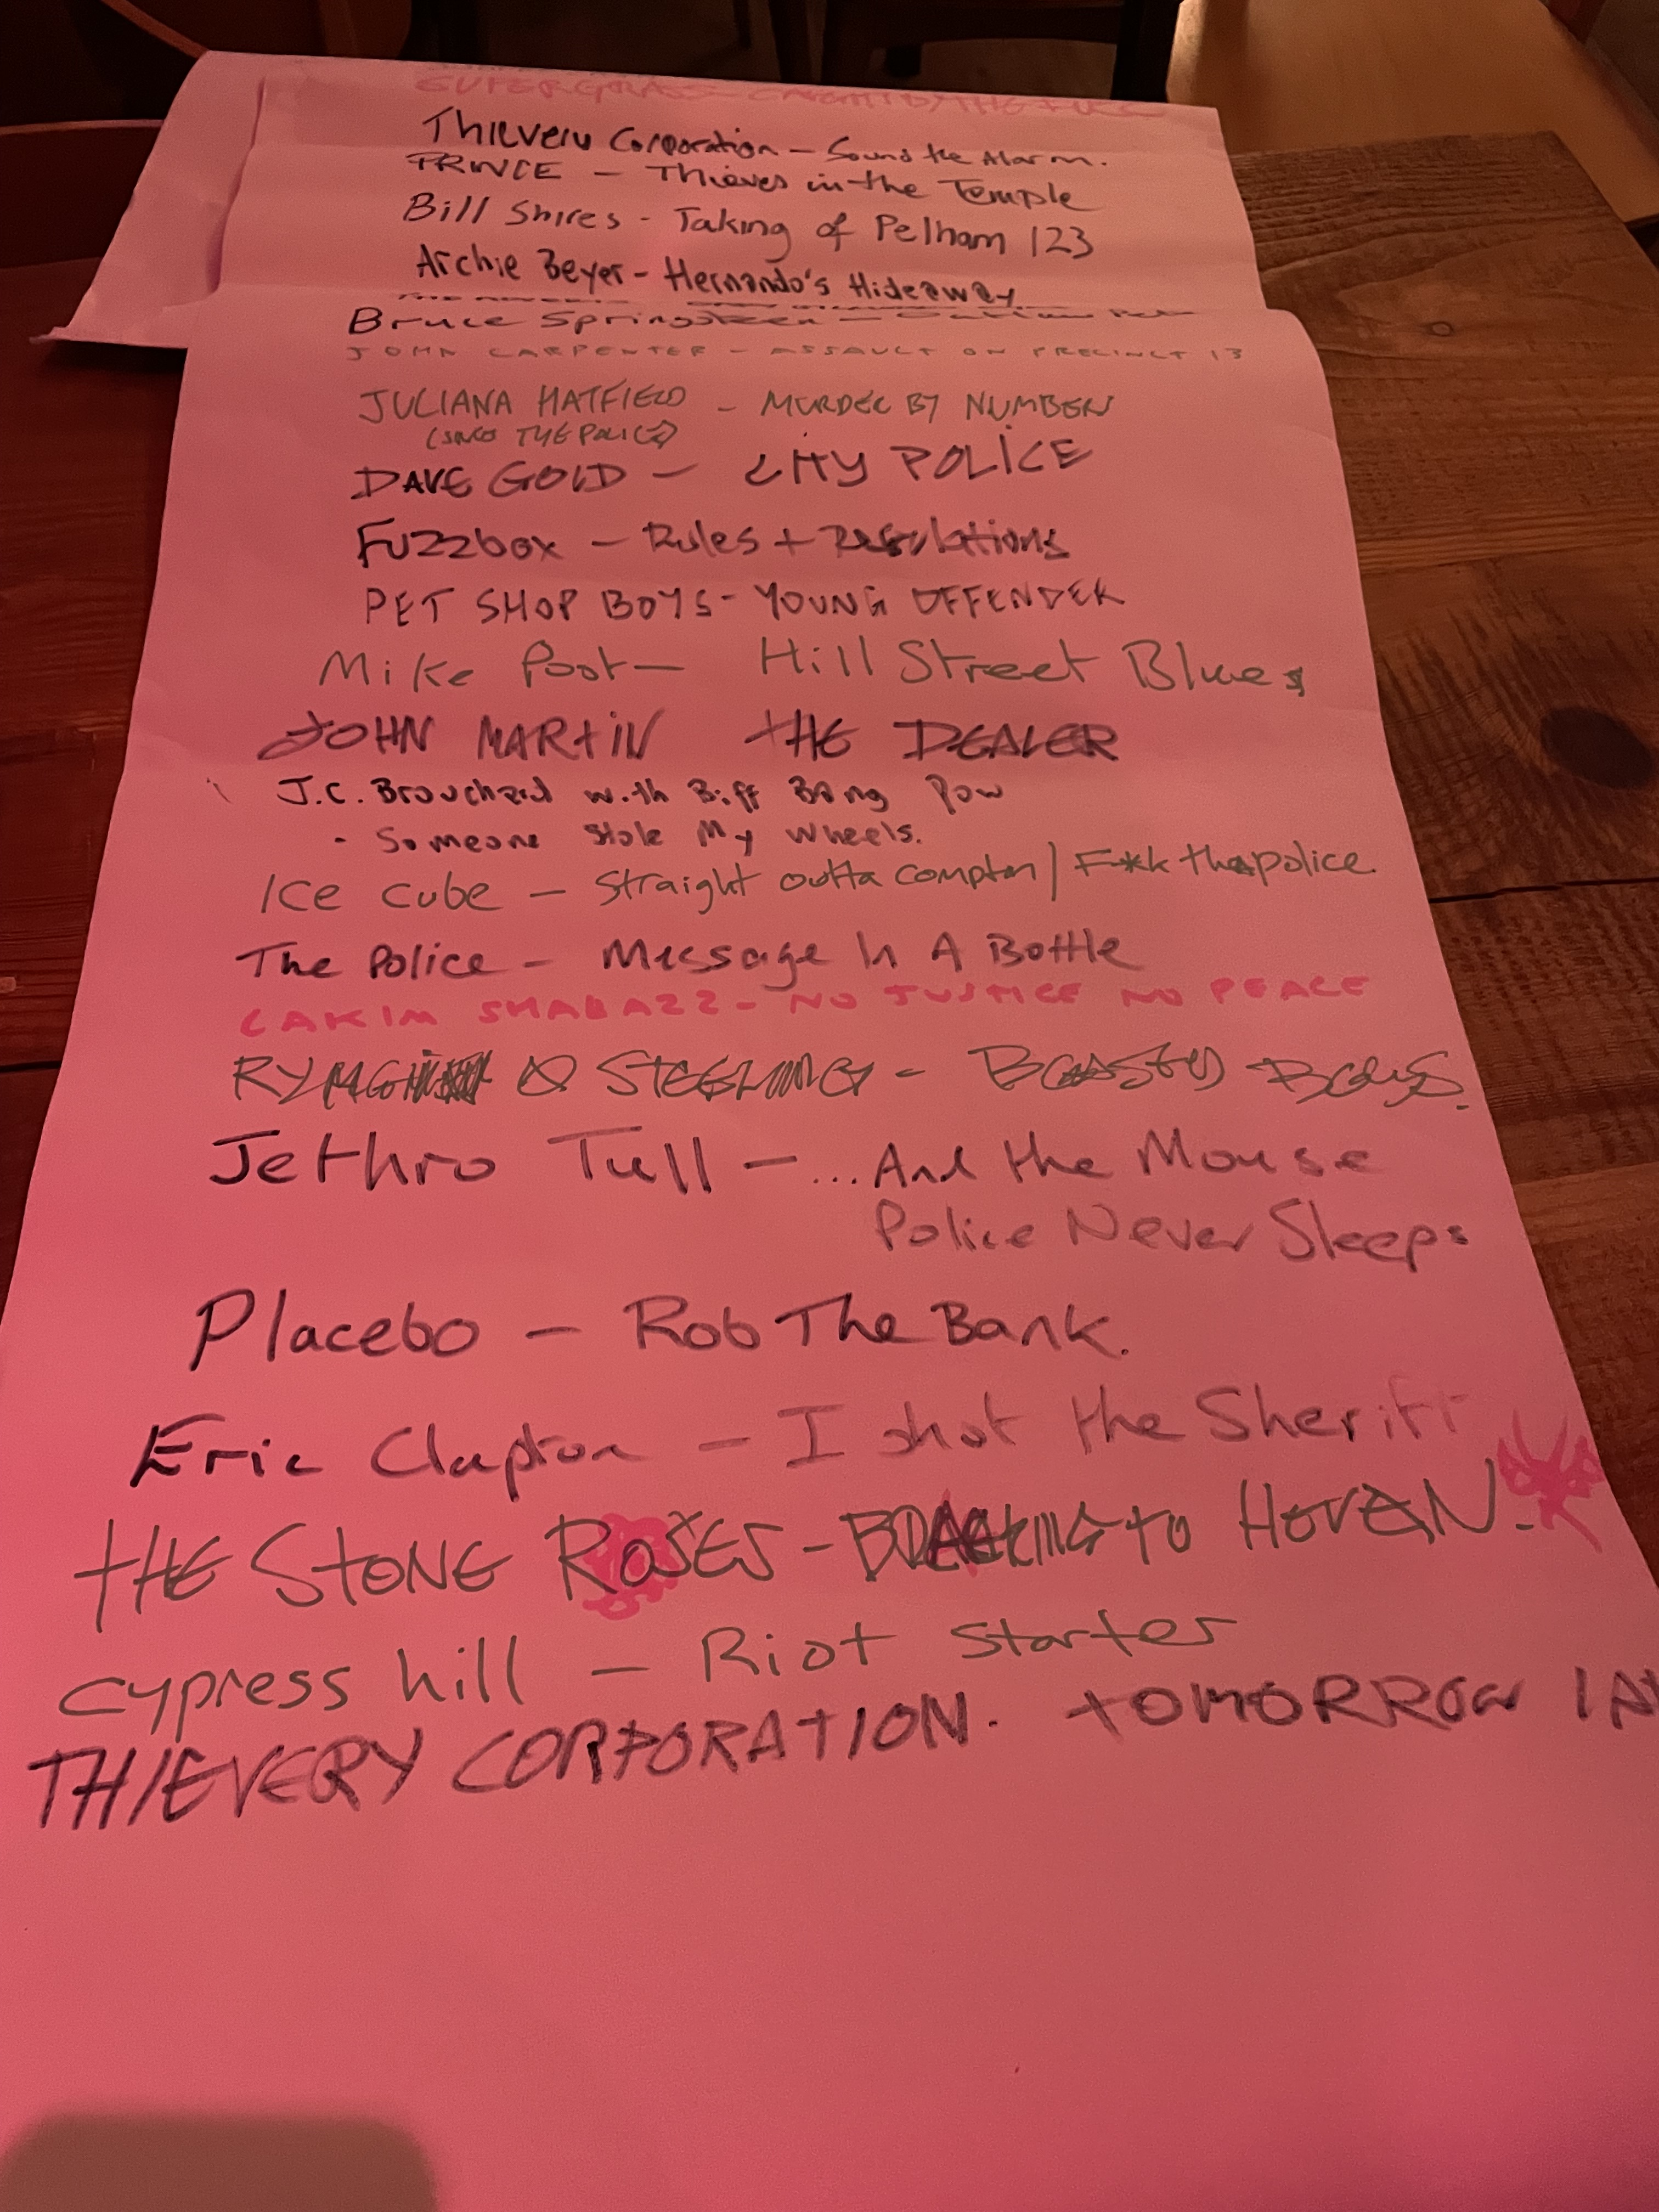 SUPERGRASS - CAUGHT BY THE FUZZ
Thievery Corporation - Sound the Alarm.
PRINCE - Thieves in the Temple
Bill Shires - Taking of Pelham 123
Archie Beyer - Hernando's Hideaway
Bruce Springsteen -
JOHN CARPENTER - ASSAULT ON PRECINCT 13
JULIANA HATFIELD - MURDER BY NUMBERS
(SINGS THE POLICE)
DAVE GOLD - CITY POLICE
Fuzzbox - Rules + Regulations
PET SHOP BOYS - YOUNG OFFENDER
Mike Post - Hill Street Blues
JOHN MARTIN THE DEALER
J.C. Brouchard with Biff Bang Pow
- Someone Stole My Wheels.
Ice Cube - Straight outta compton / F**k tha police.
The Police - Message In A Bottle
LAKIM SHABAZZ - NO JUSTICE NO PEACE
& STEELING - Beasty Boys.
Jethro Tull - ...And the Mouse
Police Never Sleeps
Placebo - Rob The Bank.
Eric Clapton - I shot the Sheriff
THE STONE ROSES - to HEVEAN.
Cypress hill - Riot Starter
THIEVERY CORPORATION. TOMORROW